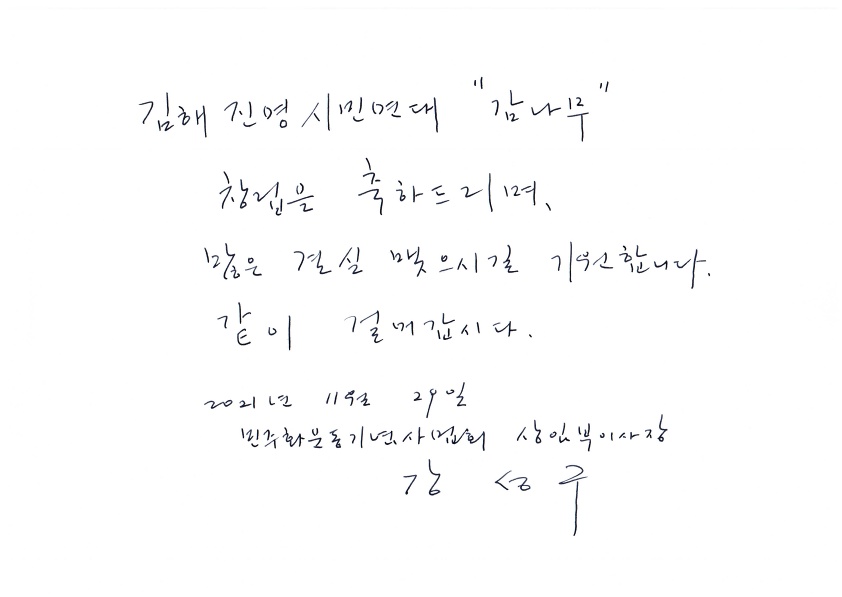 김해 진영시민연대 "감나무"
창립을 축하드리며,
많은 결실 맺으시길 기원합니다.
같이 걸어갑시다.
2021년 11월 29일
민주화운동기념사업회 상임부이사장
강 성 구